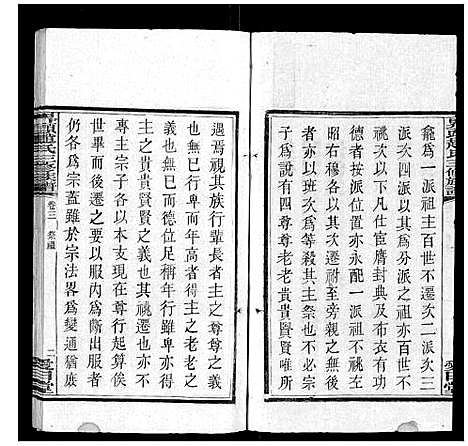 龕爲一派祖主百世不遷次二派次三
派次四派以其爲分派之祖亦百世不
祧次以下凡仕宦膺封典及有功有
德者按派位次永遠配一派祖不祧至
昭右穆各以其次遷祔至旁親之無後
者則祔食爲等殺其祭也不必宗
子主之說者有四尊尊老老貴貴賢賢唯所
遇焉視其族行輩長者主之尊尊之義
也無已則卑行而年高者主之老老之
義也無已而德位足稱年行雖卑亦得
主之貴貴賢賢之義也其祧遷也亦不
專主宗子各以本支現在尊行起算俟
世畢而後遷之要以服內爲斷出服者
仍各爲宗蓋雖於宗法畧爲變通猶庶
卷三 祭禮
二
愛日堂